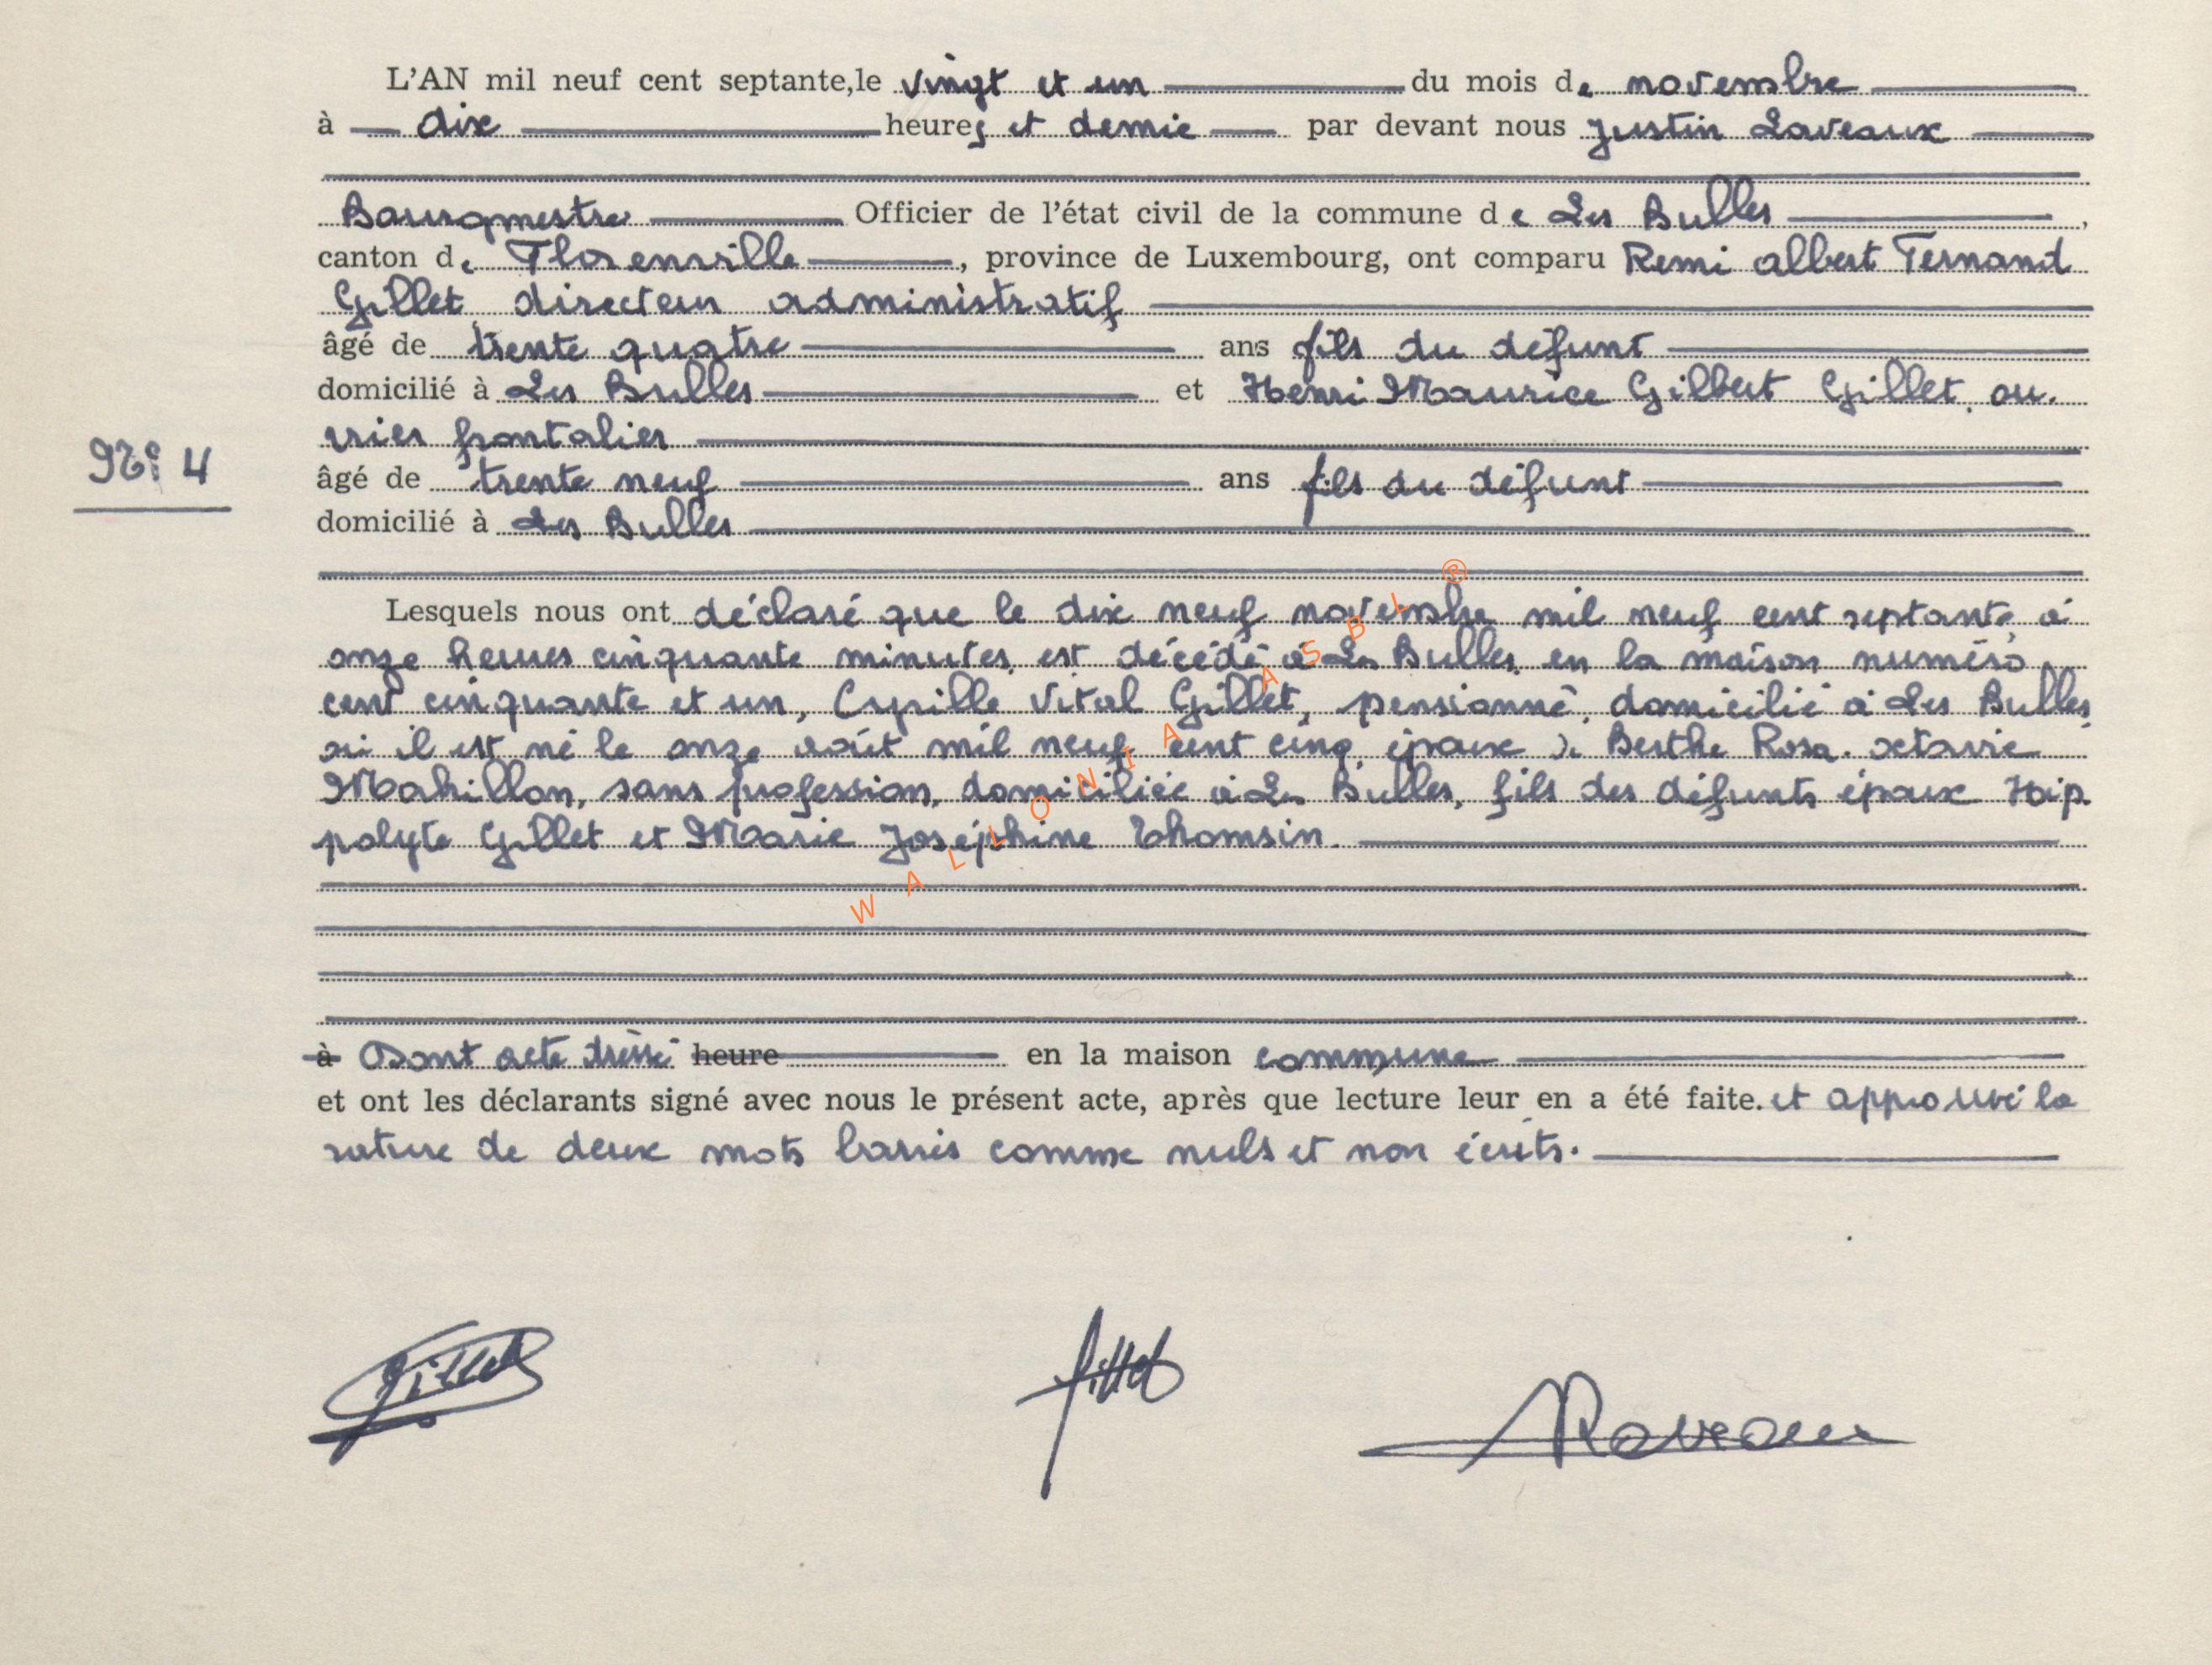 L'AN mil neuf cent septante, le vingt et un du mois de novembre
à dix heures et demie par devant nous Justin Laveaux
Bourgmestre Officier de l'état civil de la commune de Les Bulles,
canton de Florenville, province de Luxembourg, ont comparu Remi Albert Fernand
Gillet, directeur administratif
âgé de trente quatre ans fils du défunt
domicilié à Les Bulles et Henri Maurice Gilbert Gillet, ou.
vrier frontalier
N° 4
âgé de trente neuf ans fils du défunt
domicilié à Les Bulles
Lesquels nous ont déclaré que le dix neuf novembre mil neuf cent septante, à
onze heures cinquante minutes, est décédé à Les Bulles, en la maison numéro
cent cinquante et un, Cyrille Vital Gillet, pensionné, domicilié à Les Bulles,
où il est né le onze août mil neuf cent cinq, époux de Berthe Rosa Octavie
Mahillon, sans profession, domiciliée à Les Bulles, fils des défunts époux Hip.
polyte Gillet et Marie Joséphine Thomsin.
WALLONIA ASBL®
à Dont acte dressé heure en la maison commune
et ont les déclarants signé avec nous le présent acte, après que lecture leur en a été faite. et approuvé la
rature de deux mots barrés comme nuls et non écrits.
Gillet Gillet JLaveaux